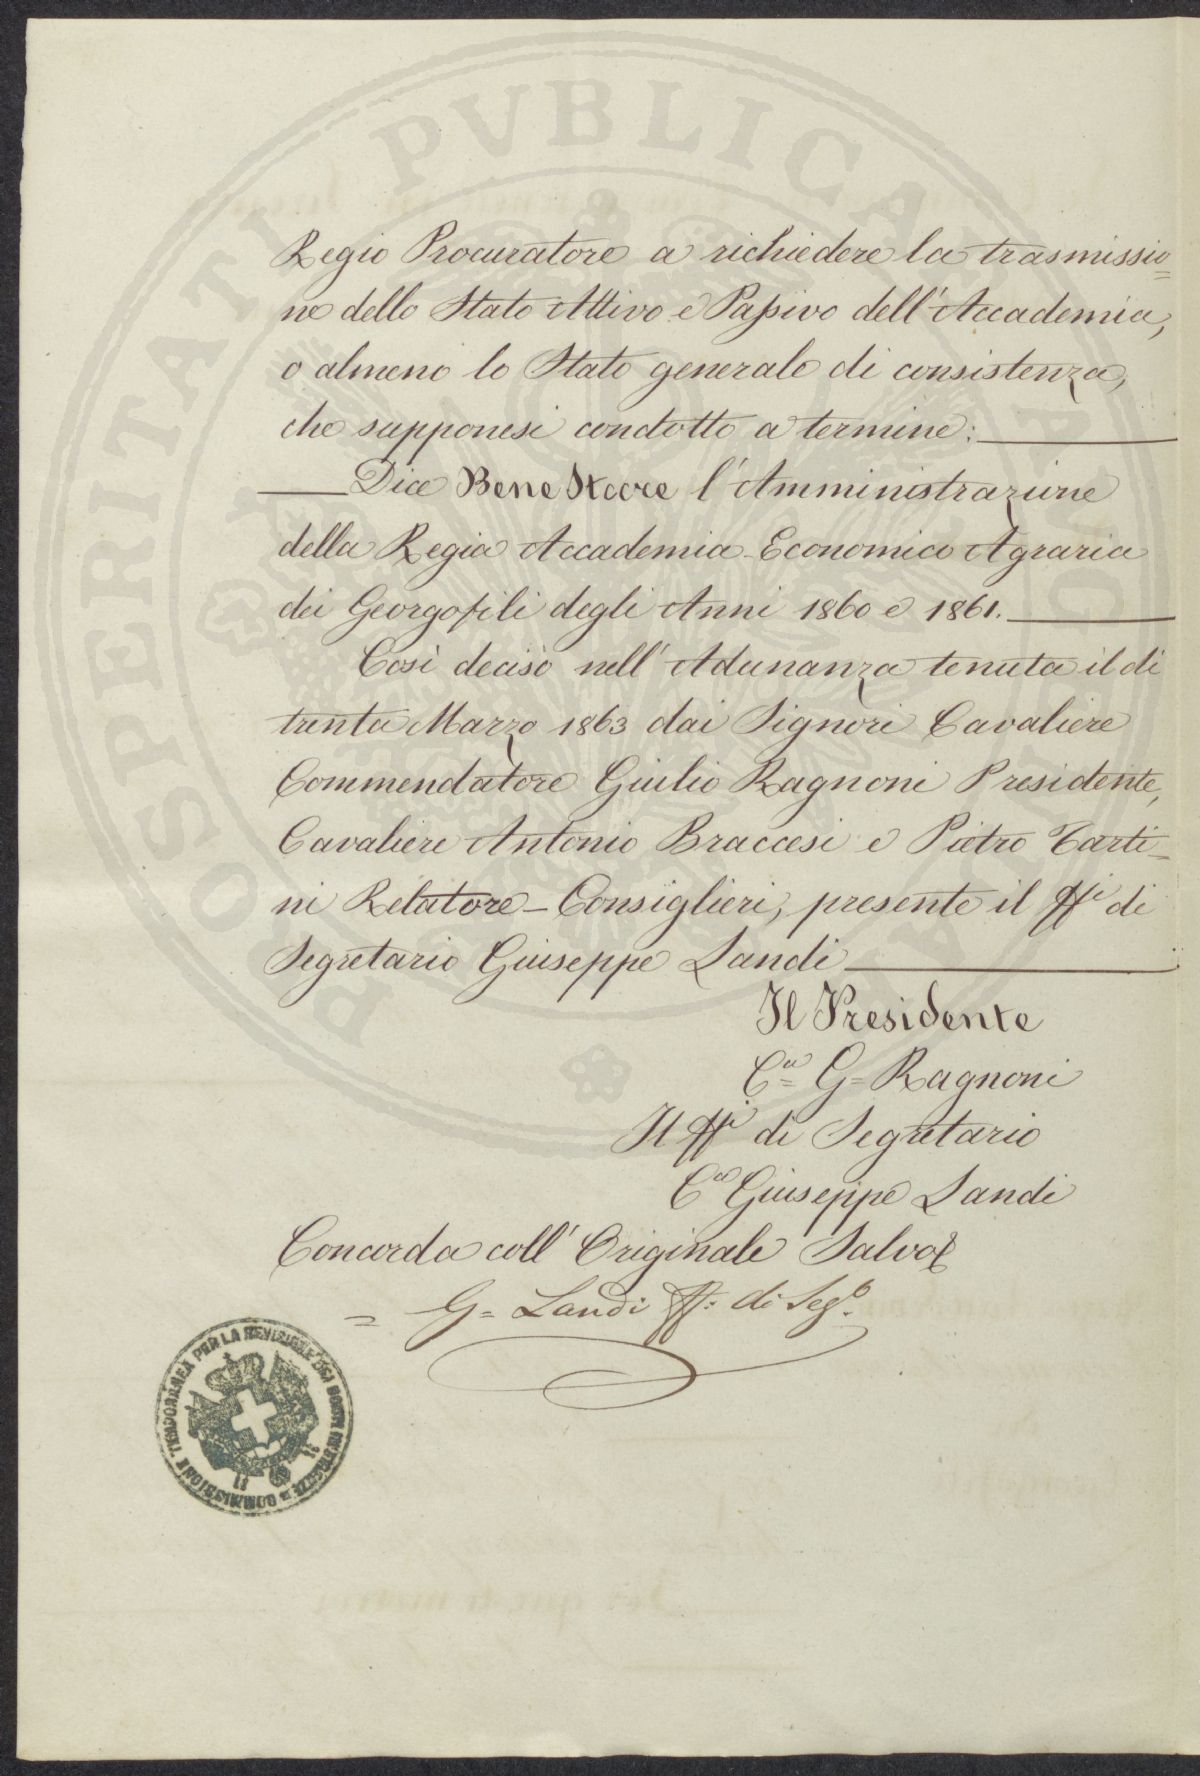 PROSPERITATI PUBLICAE AUGENDAE
Regio Procuratore a richiedere la trasmissio=
ne dello Stato Attivo e Passivo dell'Accademia,
o almeno lo Stato generale di consistenza,
che supponesi condotto a termine:
Dice Bene Stare l'Amministrazione
della Regia Accademia Economico Agraria
dei Georgofili degli Anni 1860 e 1861.
Così deciso nell'Adunanza tenuta il dì
trenta Marzo 1863 dai Signori Cavaliere
Commendatore Giulio Ragnoni Presidente,
Cavaliere Antonio Braccesi e Pietro Tarti=
ni Relatore - Consiglieri, presente il ffi di
Segretario Giuseppe Landi
Il Presidente
G= Ragnoni
Il ffi di Segretario
Giuseppe Landi
Concorda coll'Originale Salvo
= G= Landi ff: di Sego.
COMMISSIONE TEMPORANEA PER LA REVISIONE DEI